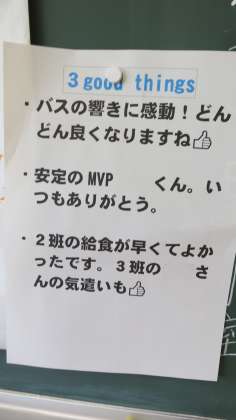 3 good things
・バスの響きに感動！どん
どん良くなりますね👍
・安定のMVP　　くん。い
つもありがとう。
・２班の給食が早くてよか
ったです。３班の　　さ
んの気遣いも👍